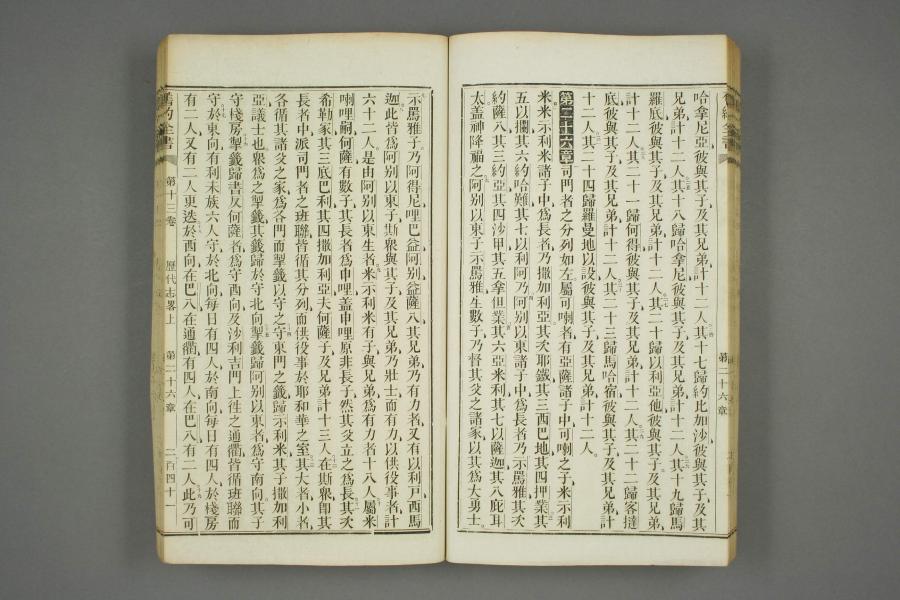 哈拿尼亞彼與其子及其兄弟計十二人其十七歸約比加沙彼與其子及其
兄弟計十二人其十八歸哈拿尼彼與其子及其兄弟計十二人其十九歸馬
羅底彼與其子及其兄弟計十二人其二十歸以利亞他彼與其子及其兄弟
計十二人其二十一歸何得彼與其子及其兄弟計十二人其二十二歸客撻
底彼與其子及其兄弟計十二人其二十三歸馬哈宿彼與其子及其兄弟計
十二人其二十四歸羅曼地以設彼與其子及其兄弟計十二人
第二十六章司門者之分列如左屬可喇者有亞薩諸子中可喇之子米示利
米米示利米諸子中爲長者乃撒加利亞其次耶鐵其三西巴地其四押業其
五以攔其六約哈難其七以利阿乃阿別以東諸子中爲長者乃示罵雅其次
約薩八其三約亞其四沙甲其五拿但業其六亞米利其七以薩迦其八庇耳
太蓋神降福之阿別以東子示罵雅生數子乃督其父之諸家以其爲大勇士
第二十六章
舊約全書
第十三卷
歷代志畧上
第二十六章
二百四十一
示罵雅子乃阿得尼哩巴益阿別益薩八其兄弟乃有力者又有以利戸西馬
迦此皆爲阿別以東子斯眾與其子及其兄弟乃壯士而有力以供役事者計
六十二人是由阿別以東生者米示利米有子與兄弟爲有力者十八人屬米
喇哩嗣何薩有數子其長者爲申哩蓋申哩原非長子然其父立之爲長其次
希勒家其三底巴利其四撒加利亞夫何薩子及兄弟計十三人在斯眾卽其
長者中派司門者之班聯皆循其分列而供役事於耶和華之室其大者小者
各循其諸父之家爲各門而掣籤以守之守東門之籤歸示利米其子撒加利
亞議士也眾爲之掣籤其籤歸於守北向掣籤歸阿別以東者爲守南向其子
守棧房掣籤歸書反何薩者爲守西向及沙利吉門上徃之通衢皆循班聯而
守於東向有利未族六人守於北向每日有四人於南向每日有四人於棧房
有二人又有二人更迭於西向在巴八在通衢有四人在巴八有二人此乃可